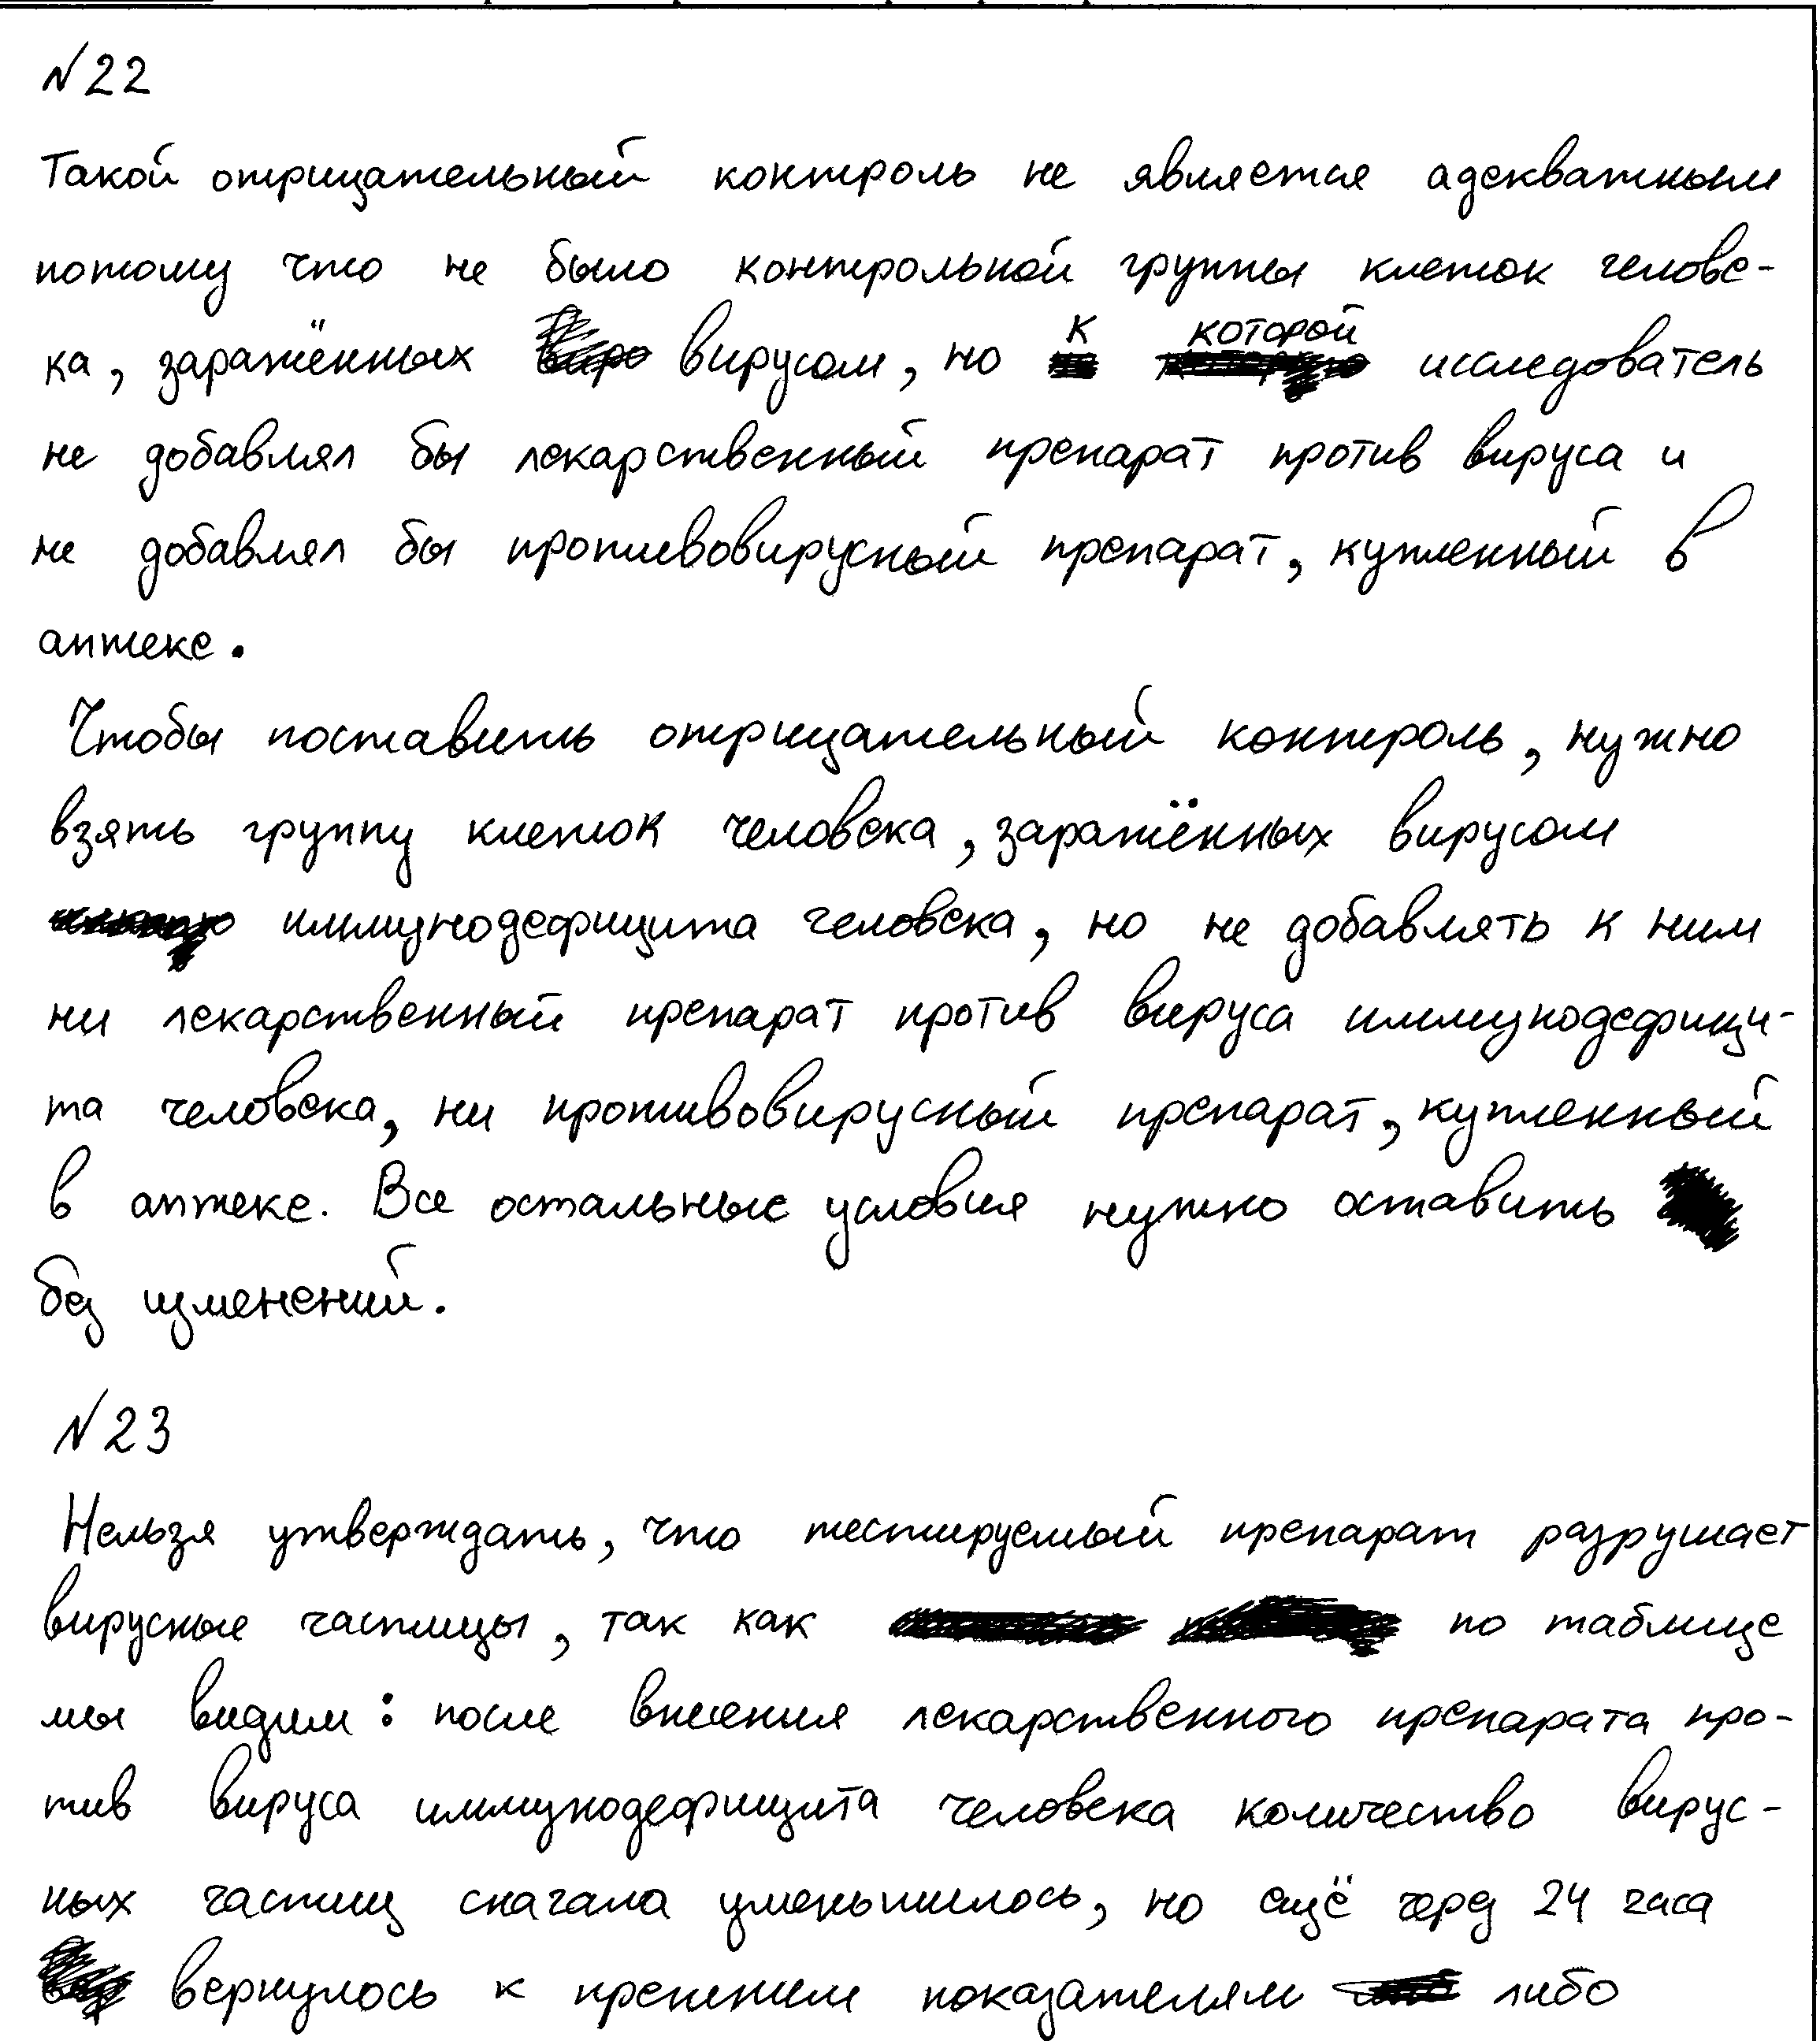 №22
Такой отрицательный контроль не является адекватным
потому что не было контрольной группы клеток челове-
ка, заражённых вирусом, но к которой исследователь
не добавлял бы лекарственный препарат против вируса и
не добавлял бы противовирусный препарат, купленный в
аптеке.
Чтобы поставить отрицательный контроль, нужно
взять группу клеток человека, заражённых вирусом
иммунодефицита человека, но не добавлять к ним
ни лекарственный препарат против вируса иммунодефици-
та человека, ни противовирусный препарат, купленный
в аптеке. Все остальные условия нужно оставить
без изменений.
№23
Нельзя утверждать, что тестируемый препарат разрушает
вирусные частицы, так как по таблице
мы видим: после внесения лекарственного препарата про-
тив вируса иммунодефицита человека количество вирус-
ных частиц сначала уменьшилось, но ещё через 24 часа
вернулось к прежним показателям либо